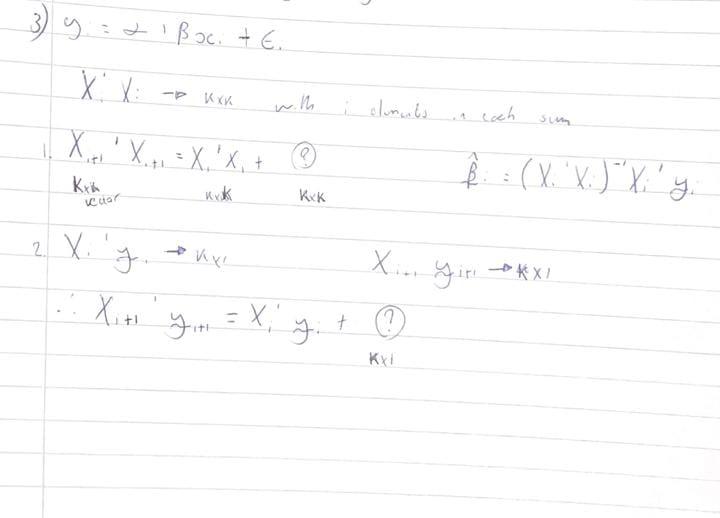 3) yᵢ = α + βxᵢ + εᵢ
Xᵢ' Xᵢ → K×K with i elements in each sum
1. Xᵢ₊₁' Xᵢ₊₁ = Xᵢ' Xᵢ + ?
K×K K×K K×K
vector
β̂ᵢ = (Xᵢ' Xᵢ)⁻¹ Xᵢ' yᵢ
2. Xᵢ' yᵢ → K×1 Xᵢ₊₁ yᵢ₊₁ → K×1
∴ Xᵢ₊₁' yᵢ₊₁ = Xᵢ' yᵢ + ?
K×1